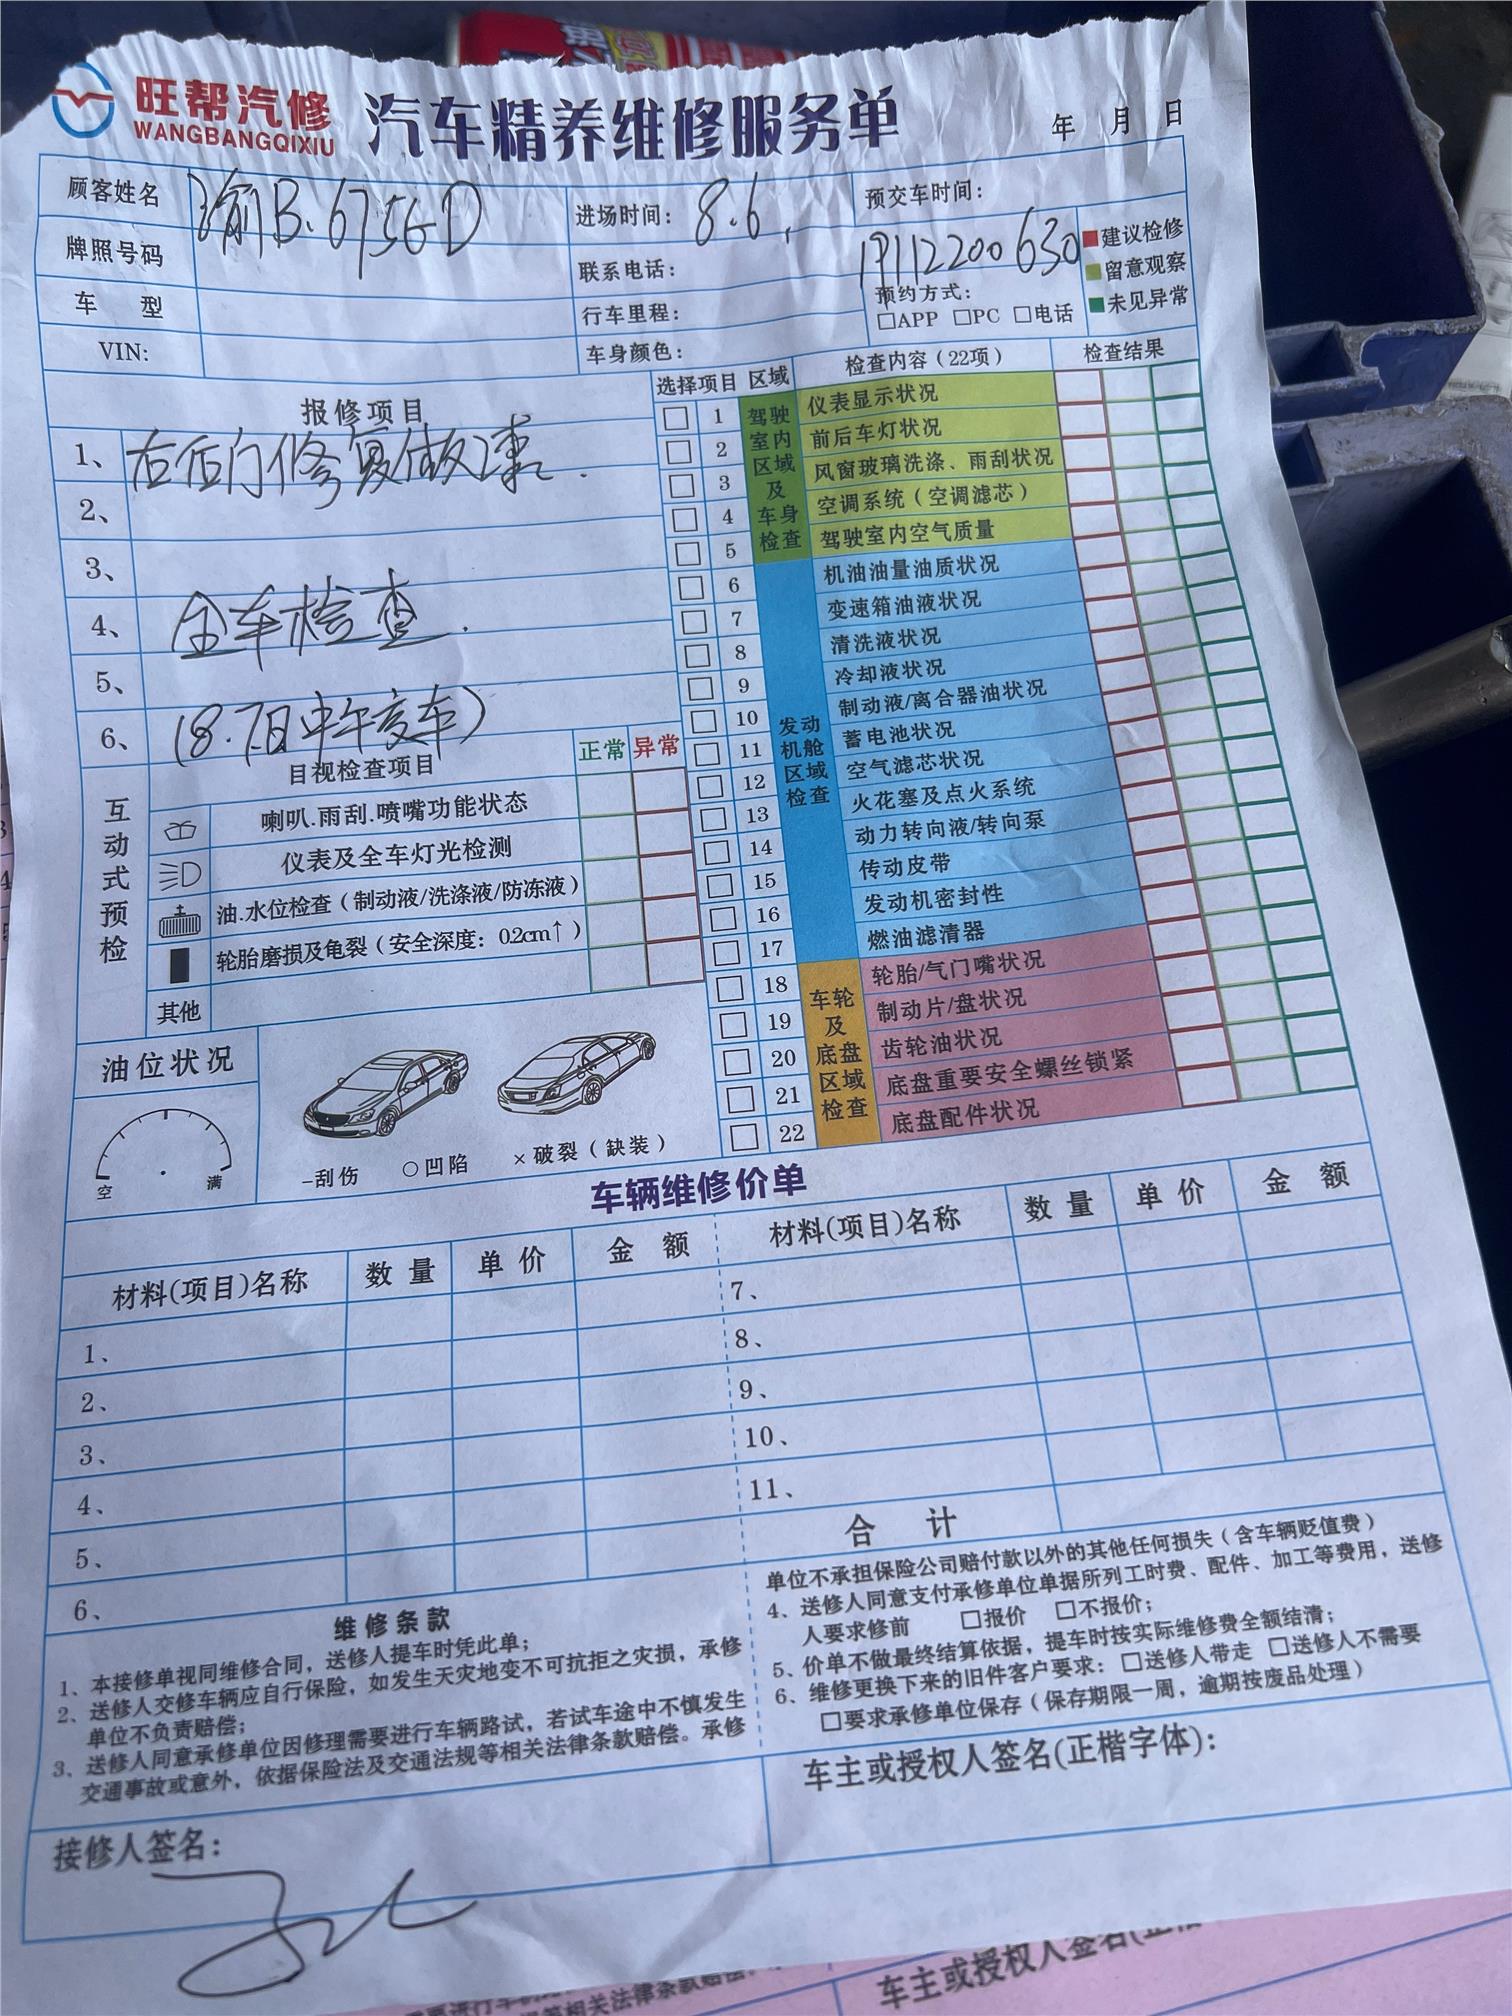 旺帮汽修
WANGBANGQIXIU
汽车精养维修服务单
年 月 日
顾客姓名 渝B.675GD
进场时间: 8.6,
预交车时间:
牌照号码
联系电话: 19112200630
车 型
行车里程:
预约方式:
□APP □PC □电话
建议检修
留意观察
未见异常
VIN:
车身颜色:
报修项目
1、右后门修复做漆.
2、
3、
4、全车检查.
5、
6、(8.7日中午交车)
选择项目 区域 检查内容(22项) 检查结果
驾驶室内区域及车身检查
1 仪表显示状况
2 前后车灯状况
3 风窗玻璃洗涤、雨刮状况
4 空调系统(空调滤芯)
5 驾驶室内空气质量
发动机舱区域检查
6 机油油量油质状况
7 变速箱油液状况
8 清洗液状况
9 冷却液状况
10 制动液/离合器油状况
11 蓄电池状况
12 空气滤芯状况
13 火花塞及点火系统
14 动力转向液/转向泵
15 传动皮带
16 发动机密封性
17 燃油滤清器
车轮及底盘区域检查
18 轮胎/气门嘴状况
19 制动片/盘状况
20 齿轮油状况
21 底盘重要安全螺丝锁紧
22 底盘配件状况
互动式预检
目视检查项目 正常 异常
喇叭.雨刮.喷嘴功能状态
仪表及全车灯光检测
油.水位检查(制动液/洗涤液/防冻液)
轮胎磨损及龟裂(安全深度: 0.2cm↑)
其他
油位状况
空 满
-刮伤 ○凹陷 ×破裂(缺装)
车辆维修价单
材料(项目)名称 数量 单价 金 额
1、
2、
3、
4、
5、
6、
材料(项目)名称 数量 单价 金 额
7、
8、
9、
10、
11、
合 计
维修条款
1、本接修单视同维修合同，送修人提车时凭此单；
2、送修人交修车辆应自行保险，如发生天灾地变不可抗拒之灾损，承修
单位不负责赔偿；
3、送修人同意承修单位因修理需要进行车辆路试，若试车途中不慎发生
交通事故或意外，依据保险法及交通法规等相关法律条款赔偿。承修
单位不承担保险公司赔付款以外的其他任何损失(含车辆贬值费)
4、送修人同意支付承修单位单据所列工时费、配件、加工等费用，送修
人要求修前 □报价 □不报价；
5、价单不做最终结算依据，提车时按实际维修费全额结清；
6、维修更换下来的旧件客户要求：□送修人带走 □送修人不需要
□要求承修单位保存(保存期限一周，逾期按废品处理)
接修人签名:
车主或授权人签名(正楷字体):
车主或授权人签名(正楷